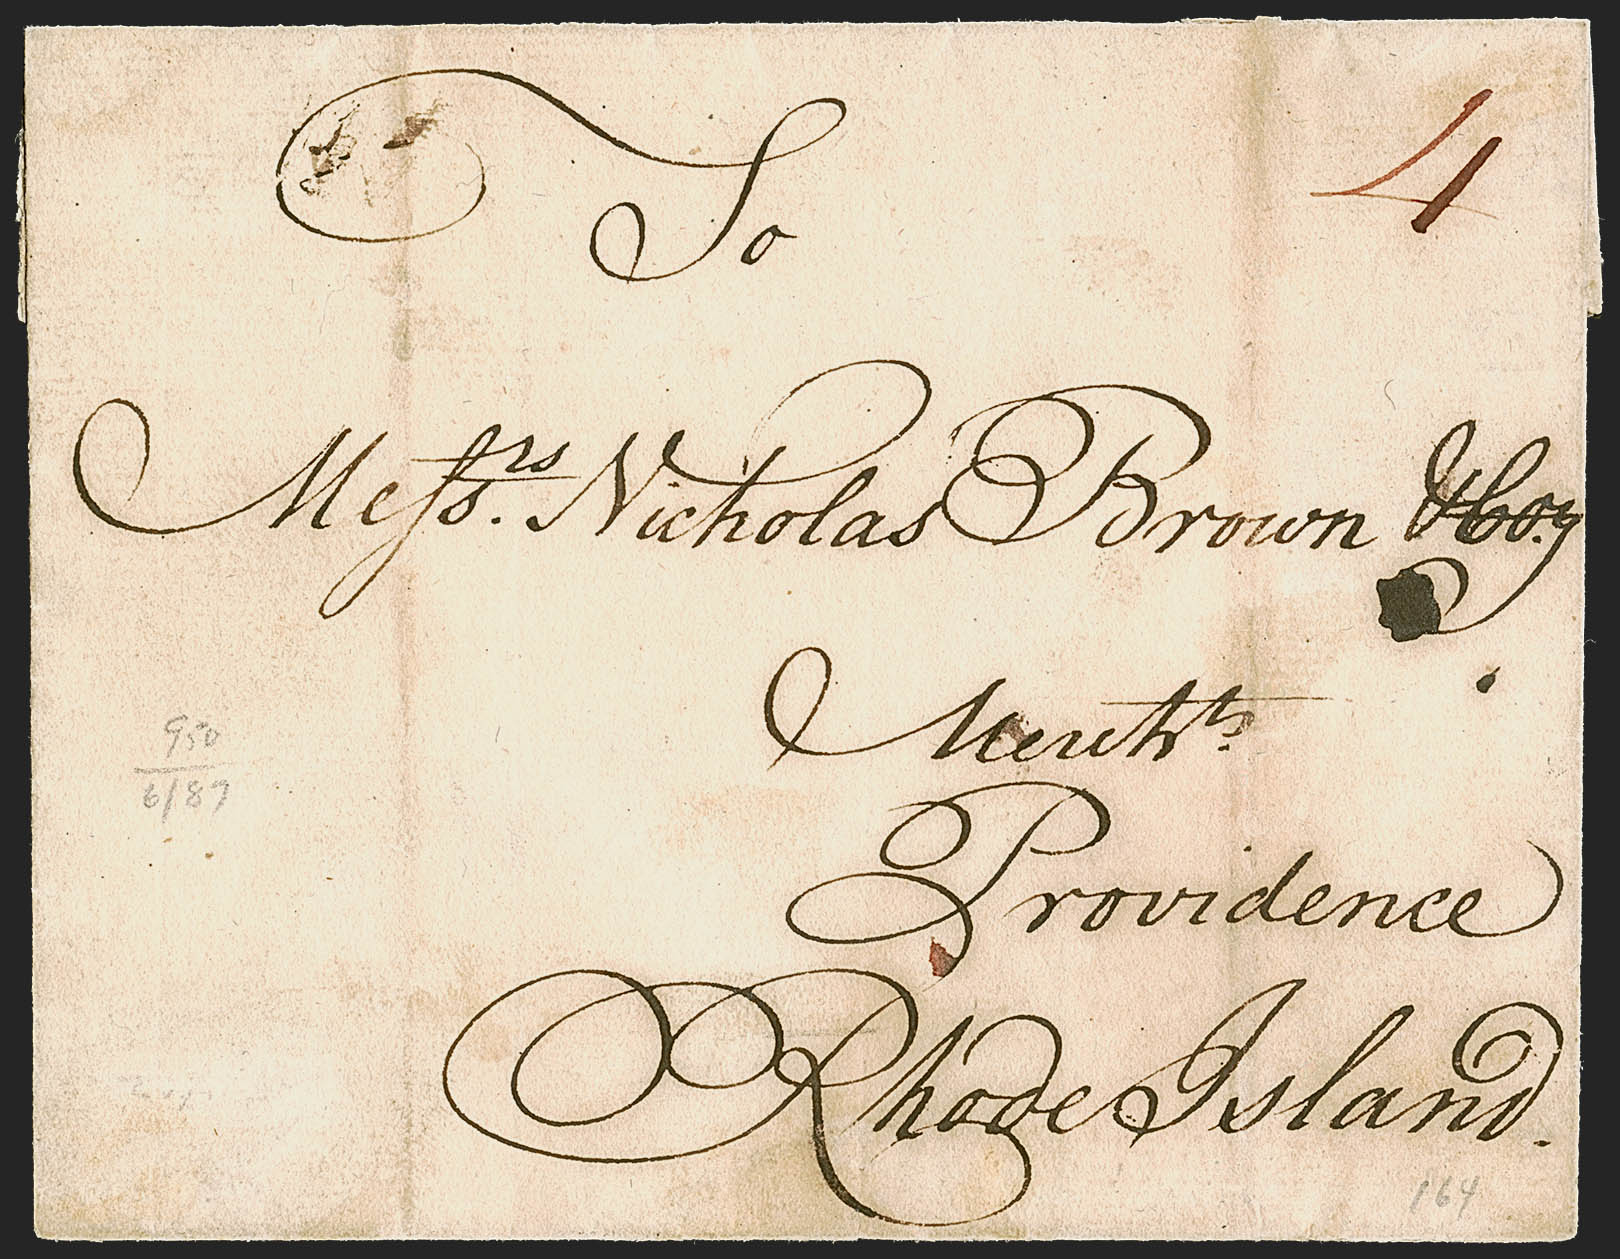 To
4
Messrs. Nicholas Brown & Coy
Mercht.s
Providence
Rhode Island.
950
6/87
164